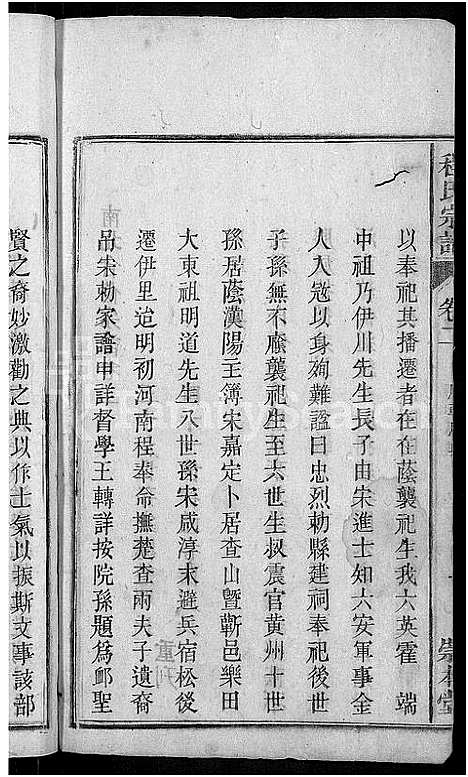 程氏宗譜
卷二
崇本堂
以奉祀其播遷者在在蔭襲祀生我六英霍 端
中祖乃伊川先生長子由宋進士知六安軍事金
人入寇以身殉難諡曰忠烈勅縣建祠奉祀後世
子孫無不廕襲祀生至六世生叔震官黄州十世
孫居蔭漢陽王簿宋嘉定卜居查山曁蘄邑樂田
大東祖明道先生八世孫宋咸淳末避兵宿松後
遷伊里迨明初河南程奉命撫楚查兩夫子遺裔
吊宋勅家譜申詳督學王轉詳按院孫題爲䣊聖
賢之裔妙激勸之典以作士氣以振斯文事該部
重刊